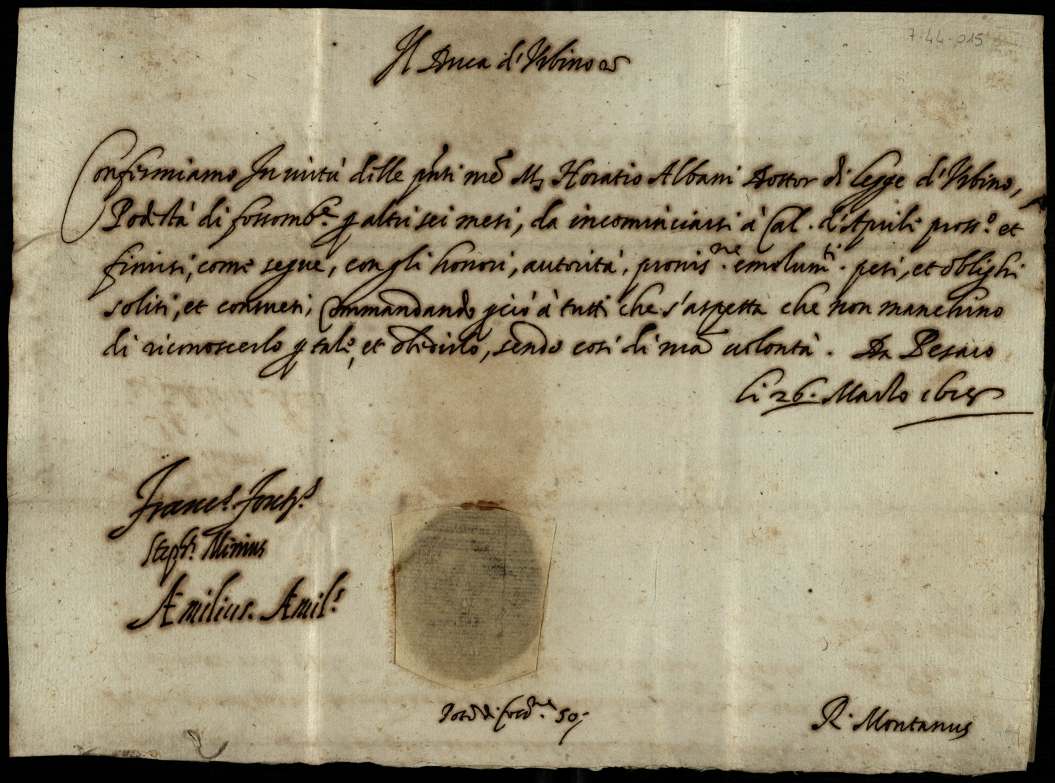 7-44-015
Il Duca d'Urbino
Confirmiamo In virtù delle pnti mē Mr Horatio Albani Dottor di legge d'Urbino,
Podestà di fossombe. p altri sei mesi, da incominciarsi à Cal. d'Aprile pross.o et
finirsi, come segue, con gli honori, autorità, provis.ne emolumti. pesi, et oblighi
soliti, et consueti, Commandando pciò à tutti che s'aspetta che non manchino
di riconoscerlo p tale, et obedirlo, sendo così di mā volontà. Da Pesaro
li 26. Marzo
Steph.s
Æmilius. Æmil.s
R. Montanus